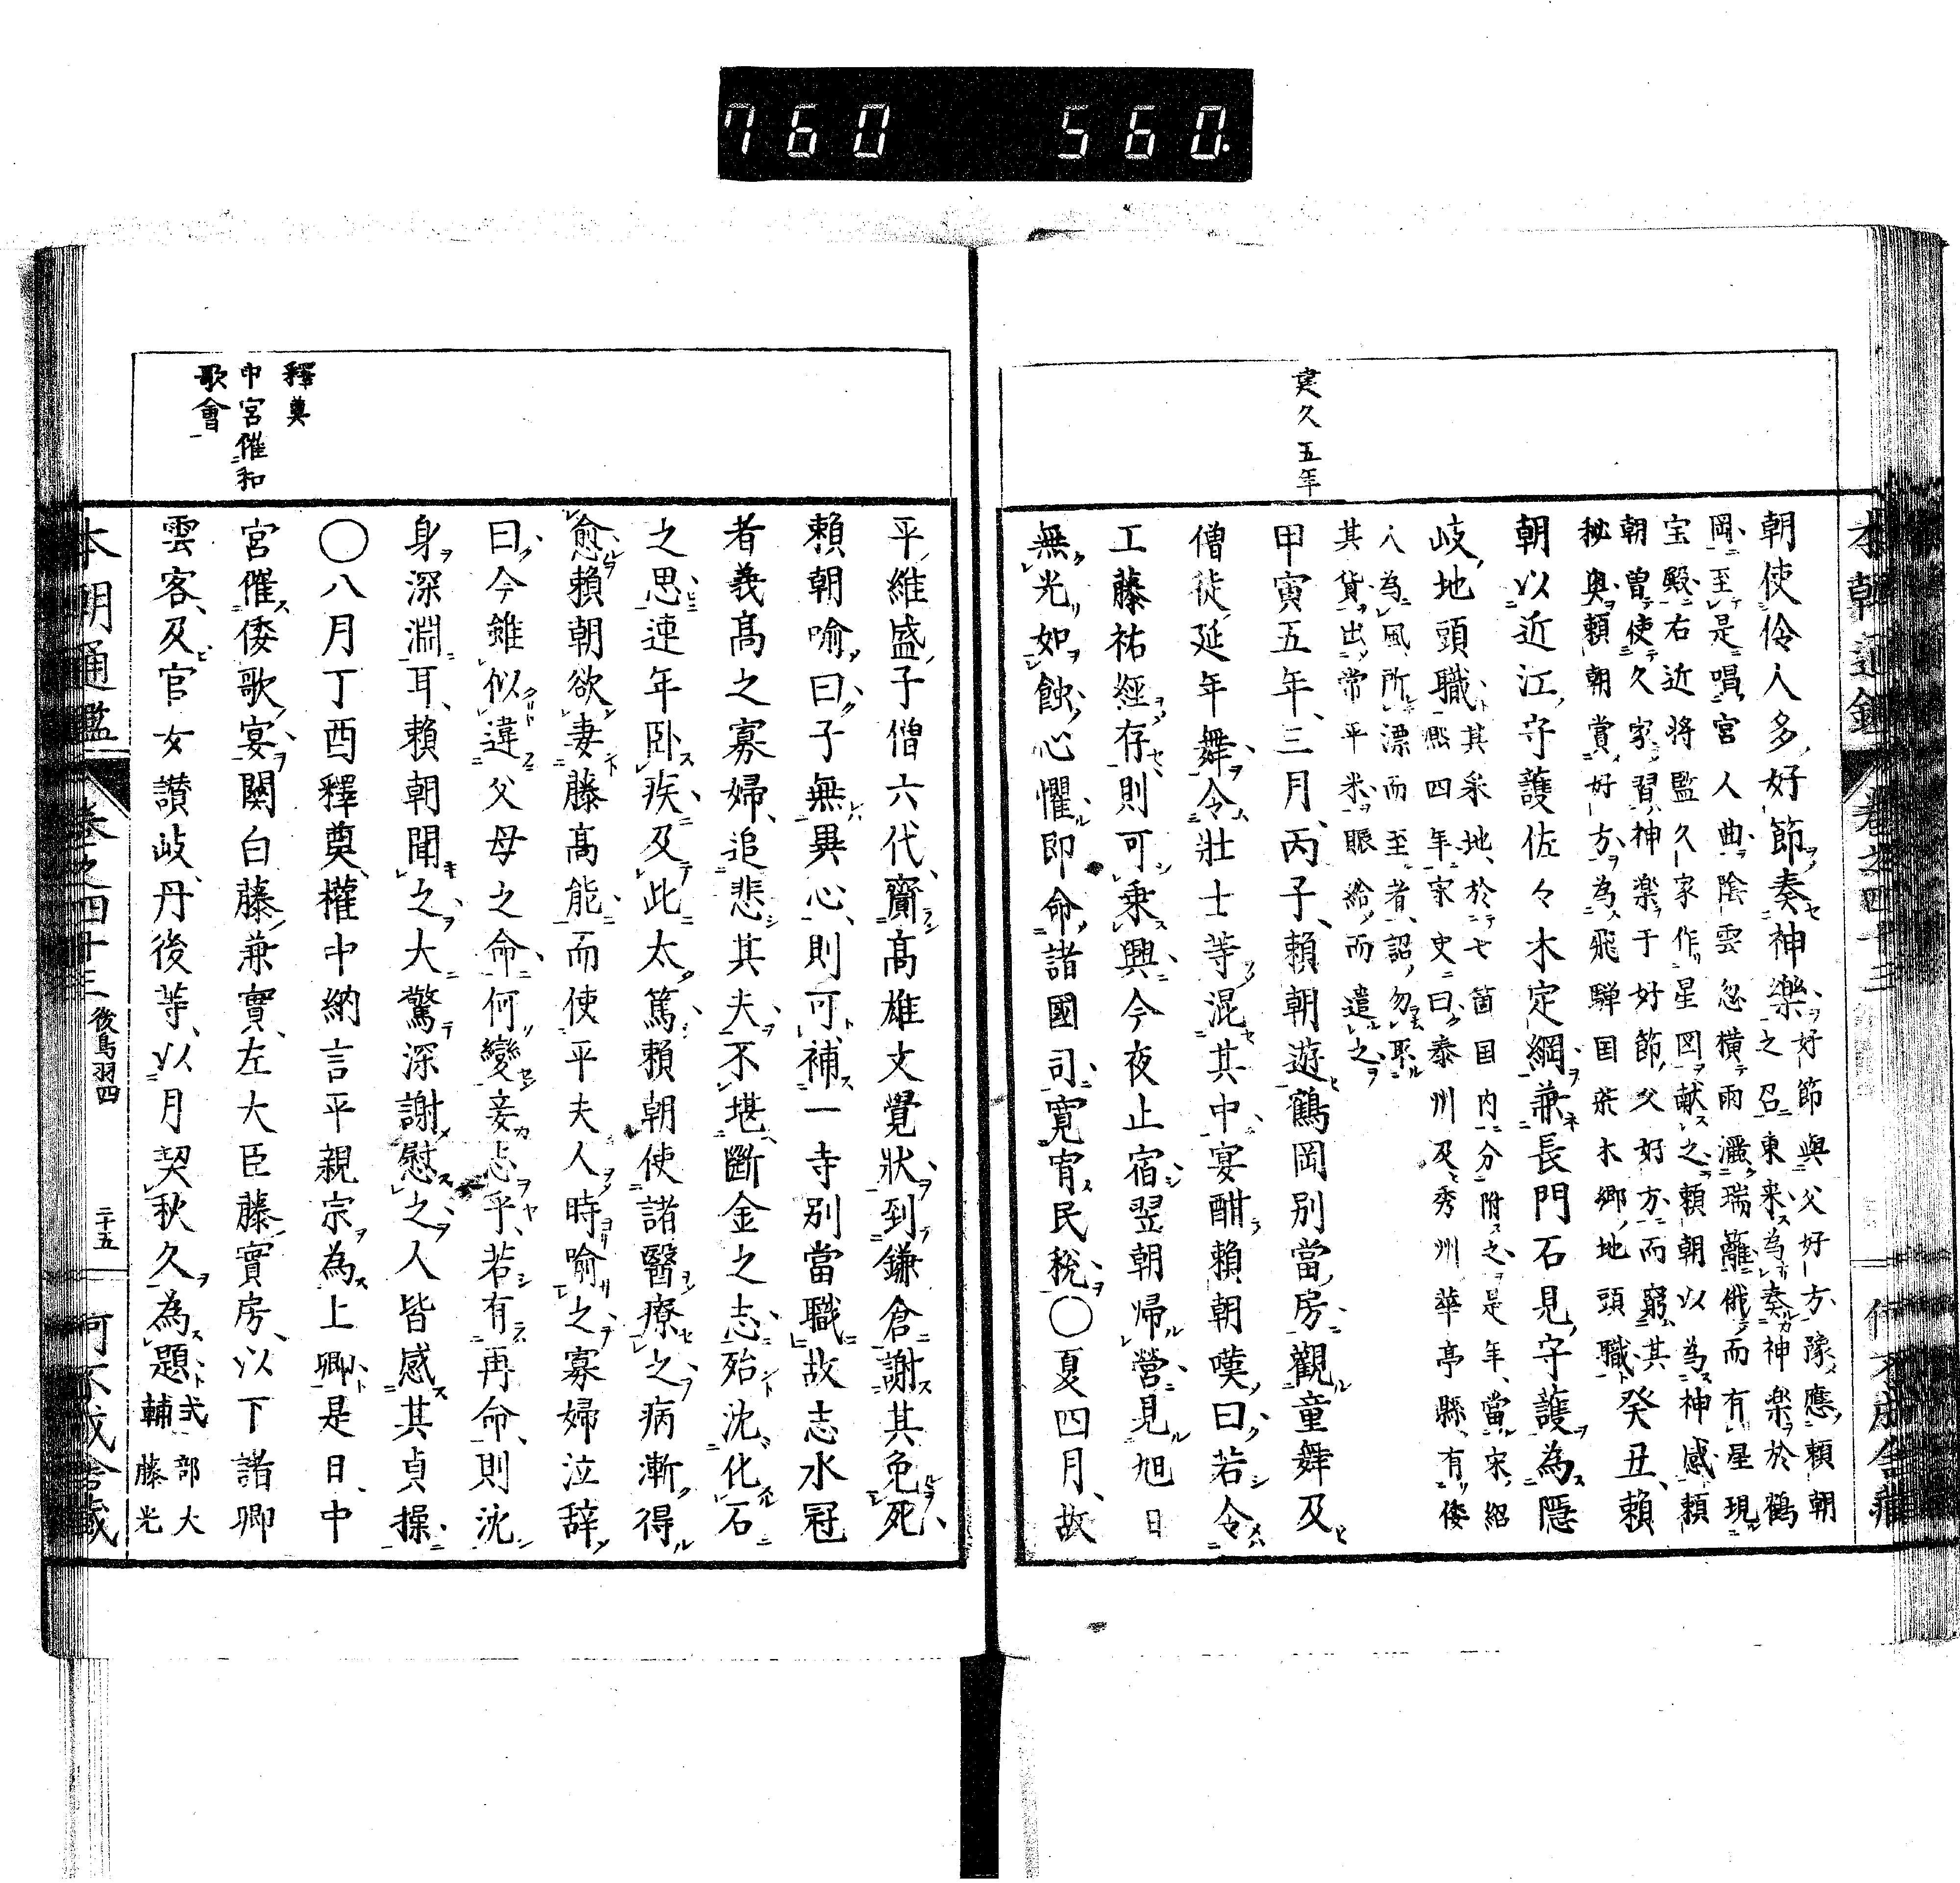 760 560.
本朝通鑑 卷之四十三
建久五年
朝使伶人多好節奏神樂好節與父好方豫應頼朝
之召東來為奏神楽於鶴
岡至是唱宮人曲陰雲忽橫雨灑瑞籬俄而有星現
宝殿右近將監久家作星図献之頼朝以為神感頼
朝曽使久家習神楽于好節父好方而窮其
秘奥頼朝賞好方為飛騨国柴木郷地頭職癸丑頼
朝以近江守護佐々木定綱兼長門石見守護為隱
岐地頭職其釆地於七箇国内分附之是年當宋紹
熈四年宋史曰泰州及秀州華亭縣有倭
人為風所漂而至者詔勿取
其貨出常平米賑給而遣之
甲寅五年三月丙子頼朝遊鶴岡別當房觀童舞及
僧徒延年舞令壯士等混其中宴酣頼朝嘆曰若令
工藤祐經存則可乘興今夜止宿翌朝帰營見旭日
無光如蝕心懼即命諸國司寛宥民稅〇夏四月故
平維盛子僧六代齎高雄文覺狀到鎌倉謝其免死
頼朝喻曰子無異心則可補一寺別當職故志水冠
者義高之寡婦追悲其夫不堪斷金之志殆沈化石
之思連年臥疾及此太篤頼朝使諸醫療之病漸得
愈頼朝欲妻藤高能而使平夫人時喻之寡婦泣辞
曰今雖似違父母之命何變妾志乎若有再命則沈
身深淵耳頼朝聞之大驚深謝慰之人皆感其貞操
〇八月丁酉釋奠權中納言平親宗為上卿是日中
宮催倭歌宴関白藤兼實左大臣藤實房以下諸卿
雲客及官女讃岐丹後等以月契秋久為題式部大
輔藤光
釋奠
中宮催和
歌會
本朝通鑑 卷之四十三 後鳥羽四 二十五 何不成舍藏